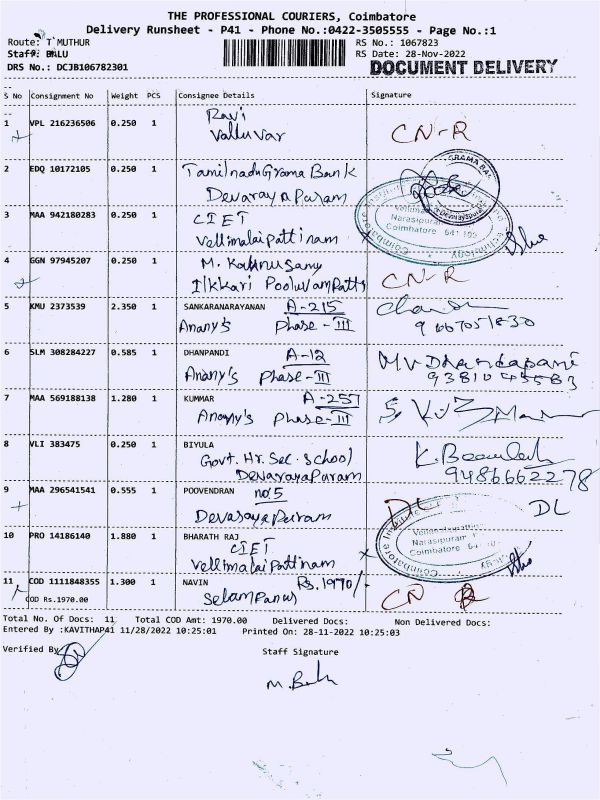 THE PROFESSIONAL COURIERS, Coimbatore
Delivery Runsheet - P41 - Phone No.:0422-3505555 - Page No.:1
Route: T MUTHUR RS No.: 1067823
Staff: BALU RS Date: 28-Nov-2022
DRS No.: DCJB106782301 DOCUMENT DELIVERY
S No Consignment No Weight PCS Consignee Details Signature
1 VPL 216236506 0.250 1 Ravi CN-R
Valluvar
2 EDQ 10172105 0.250 1 Tamilnadu Grama Bank
Devarayapuram
3 MAA 942180283 0.250 1 CIET
Vellimalaipattinam
4 GGN 97945207 0.250 1 M. CN-R
Ilkkari
5 KMU 2373539 2.350 1 SANKARANARAYANAN A-215
Anany's Phase - III
6 SLM 308284227 0.585 1 DHANPANDI A-12 M.V Dhandapani
Anany's Phase - III
7 MAA 569188138 1.280 1 KUMMAR A-257
Anany's Phase - III
8 VLI 383475 0.250 1 BIYULA
Govt. Hr. Sec. School
Devarayapuram 9486662278
9 MAA 296541541 0.555 1 POOVENDRAN no5 DL DL
Devarayapuram
10 PRO 14186140 1.880 1 BHARATH RAJ
CIET
Vellimalaipattinam
11 COD 1111848355 1.300 1 NAVIN Rs. 1970/- CN R
COD Rs.1970.00
Total No. Of Docs: 11 Total COD Amt: 1970.00 Delivered Docs: Non Delivered Docs:
Entered By :KAVITHAP41 11/28/2022 10:25:01 Printed On: 28-11-2022 10:25:03
Verified By Staff Signature